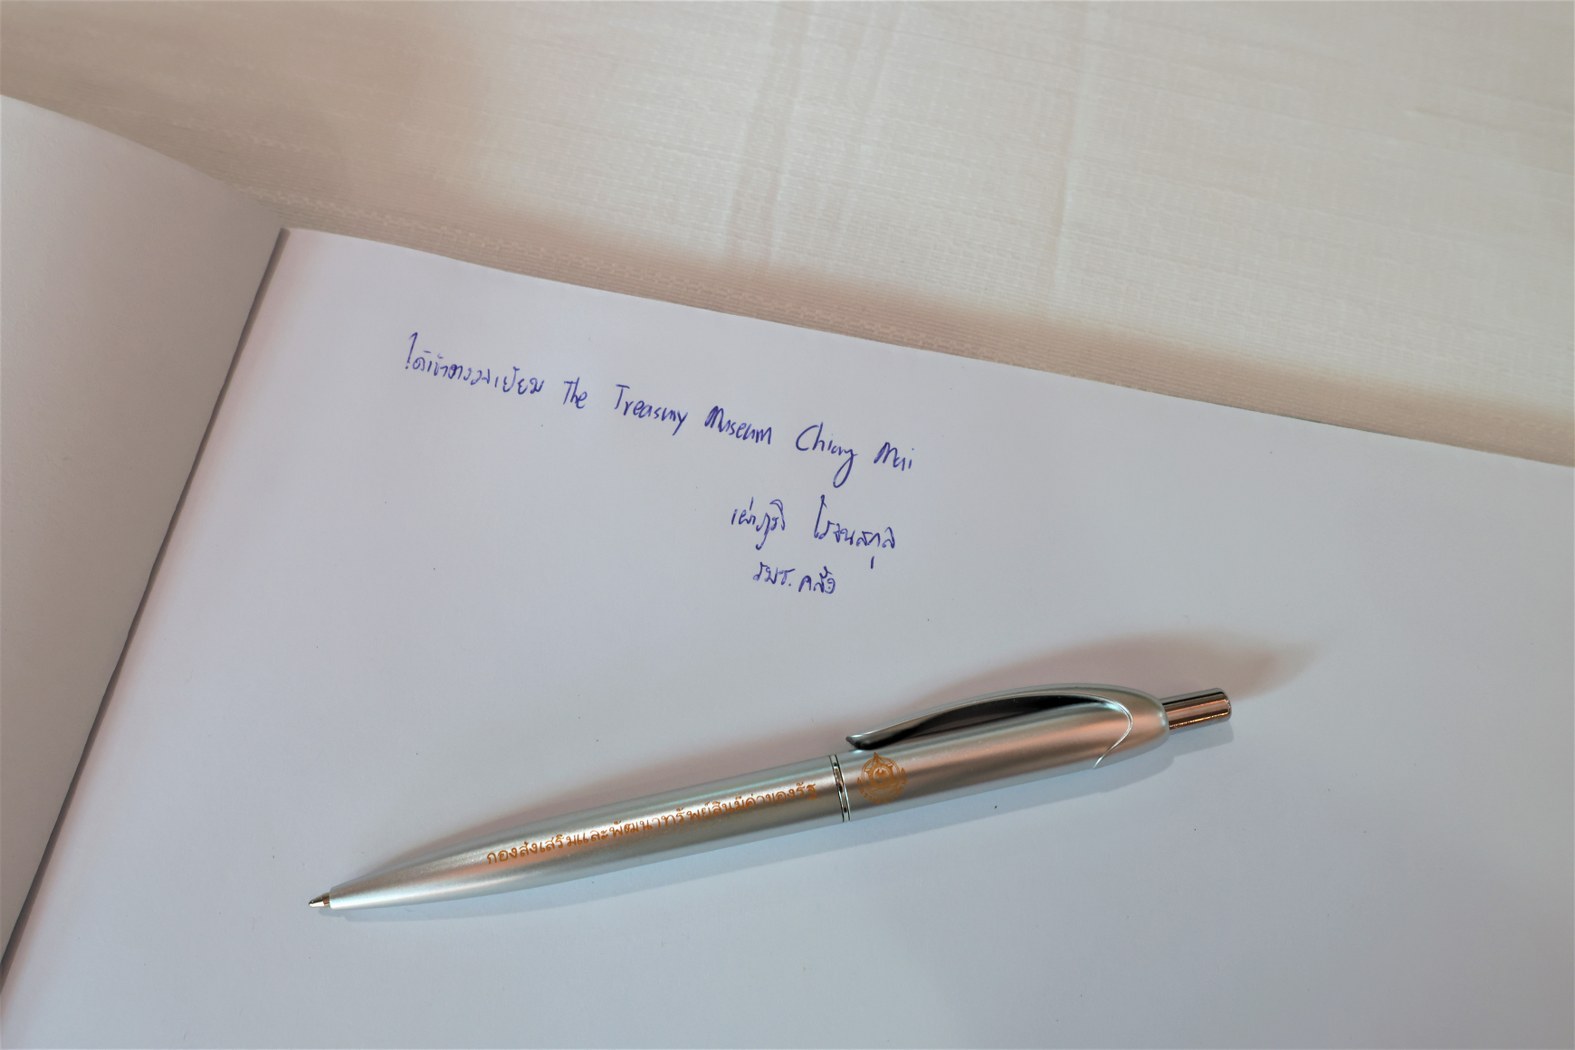 ได้เข้าตรวจเยี่ยม The Treasury Museum Chiang Mai
เผ่าภูมิ โรจนสกุล
รมช. คลัง
กองส่งเสริมและพัฒนาทรัพย์สินมีค่าของรัฐ